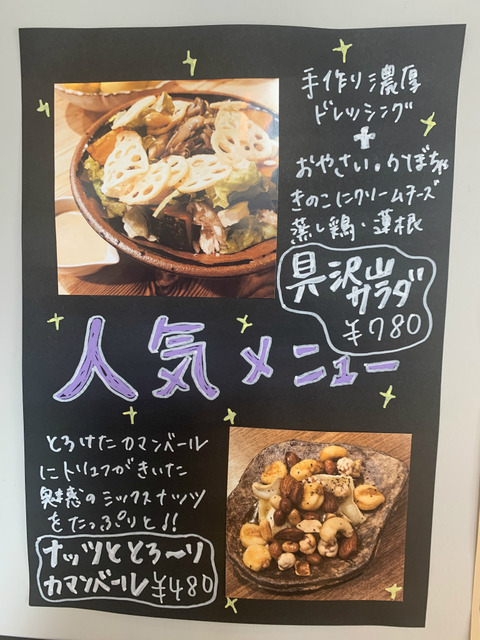 手作り濃厚
ドレッシング
+
おやさい。かぼちゃ
きのこにクリームチーズ
蒸し鶏・蓮根
具沢山
サラダ
¥780
人気メニュー
とろけたカマンベール
にトリュフがきいた
魅惑のミックスナッツ
をたっぷりと!!
ナッツととろ〜り
カマンベール ¥480